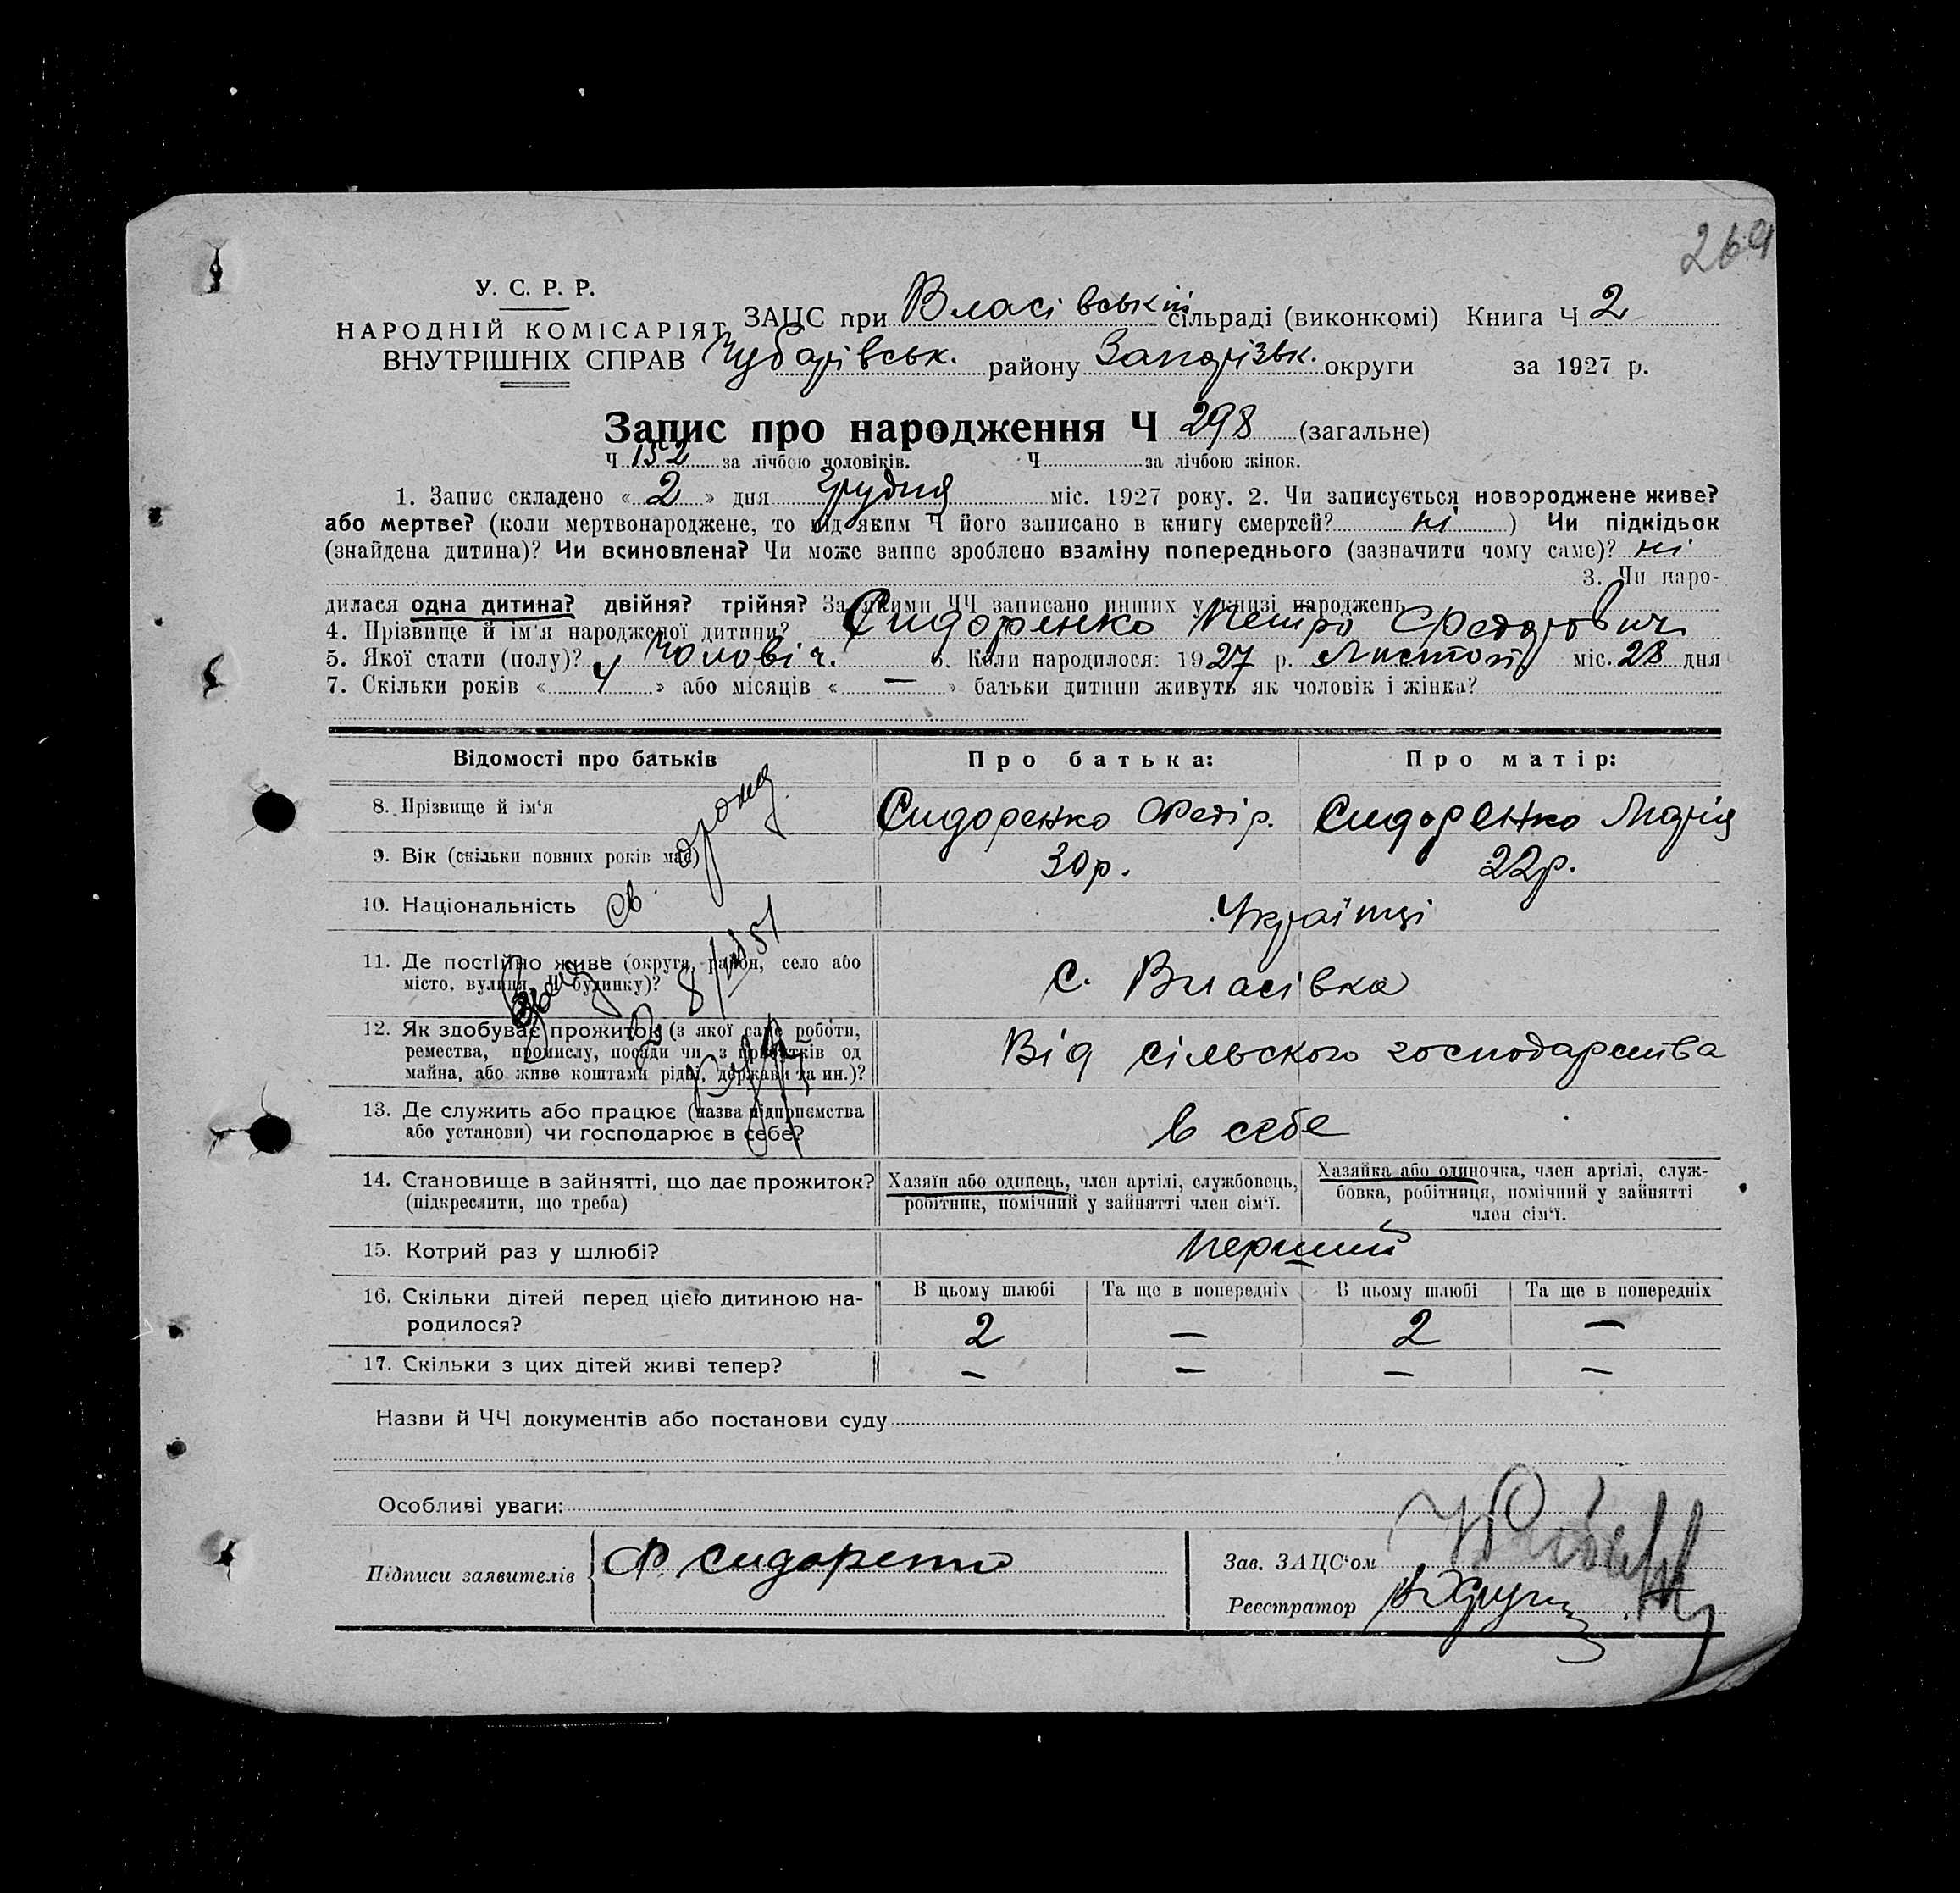 269
У. С. Р. Р.
НАРОДНІЙ КОМІСАРІЯТ
ВНУТРІШНІХ СПРАВ
ЗАЦС при Власівській сільраді (виконкомі) Книга Ч 2
Чубарівськ. району Запорізьк. округи за 1927 р.
Запис про народження Ч 298 (загальне)
Ч 152 за лічбою чоловіків. Ч за лічбою жінок.
1. Запис складено « 2 » дня Грудня міс. 1927 року. 2. Чи записується новороджене живе?
або мертве? (коли мертвонароджене, то під яким Ч його записано в книгу смертей? ні ) Чи підкідьок
(знайдена дитина)? Чи всиновлена? Чи може запис зроблено взаміну попереднього (зазначити чому саме)? ні
3. Чи наро-
дилася одна дитина? двійня? трійня? За якими ЧЧ записано инших у книзі народжень
4. Прізвище й ім'я народженої дитини? Сидоренко Петро Федорович
5. Якої стати (полу)? Чоловіч. 6. Коли народилося: 1927 р. Листоп. міс. 28 дня
7. Скільки років « 4 » або місяців « — » батьки дитини живуть як чоловік і жінка?
Відомості про батьків
Про батька:
Про матір:
8. Прізвище й ім'я
Сидоренко Федір.
Сидоренко Марія
9. Вік (скільки повних років має)
30р.
22р.
10. Національність
Українці
11. Де постійно живе (округа, район, село або
місто, вулиця, Ч будинку)?
с. Власівка
12. Як здобуває прожиток (з якої саме роботи,
ремества, промислу, посади чи з прибутків од
майна, або живе коштами рідні, держави та ин.)?
Від сільского господарства
13. Де служить або працює (назва підприємства
або установи) чи господарює в себе?
в себе
14. Становище в зайнятті, що дає прожиток?
(підкреслити, що треба)
Хазяїн або одинець, член артілі, службовець,
робітник, помічний у зайнятті член сім'ї.
Хазяйка або одиночка, член артілі, служ-
бовка, робітниця, помічний у зайнятті
член сім'ї.
15. Котрий раз у шлюбі?
перший
16. Скільки дітей перед цією дитиною на-
родилося?
В цьому шлюбі
Та ще в попередніх
В цьому шлюбі
Та ще в попередніх
2 — 2 —
17. Скільки з цих дітей живі тепер?
— — — —
Назви й ЧЧ документів або постанови суду
Особливі уваги:
Підписи заявителів
Ф. Сидоренко
Зав. ЗАЦС'ом
Реєстратор